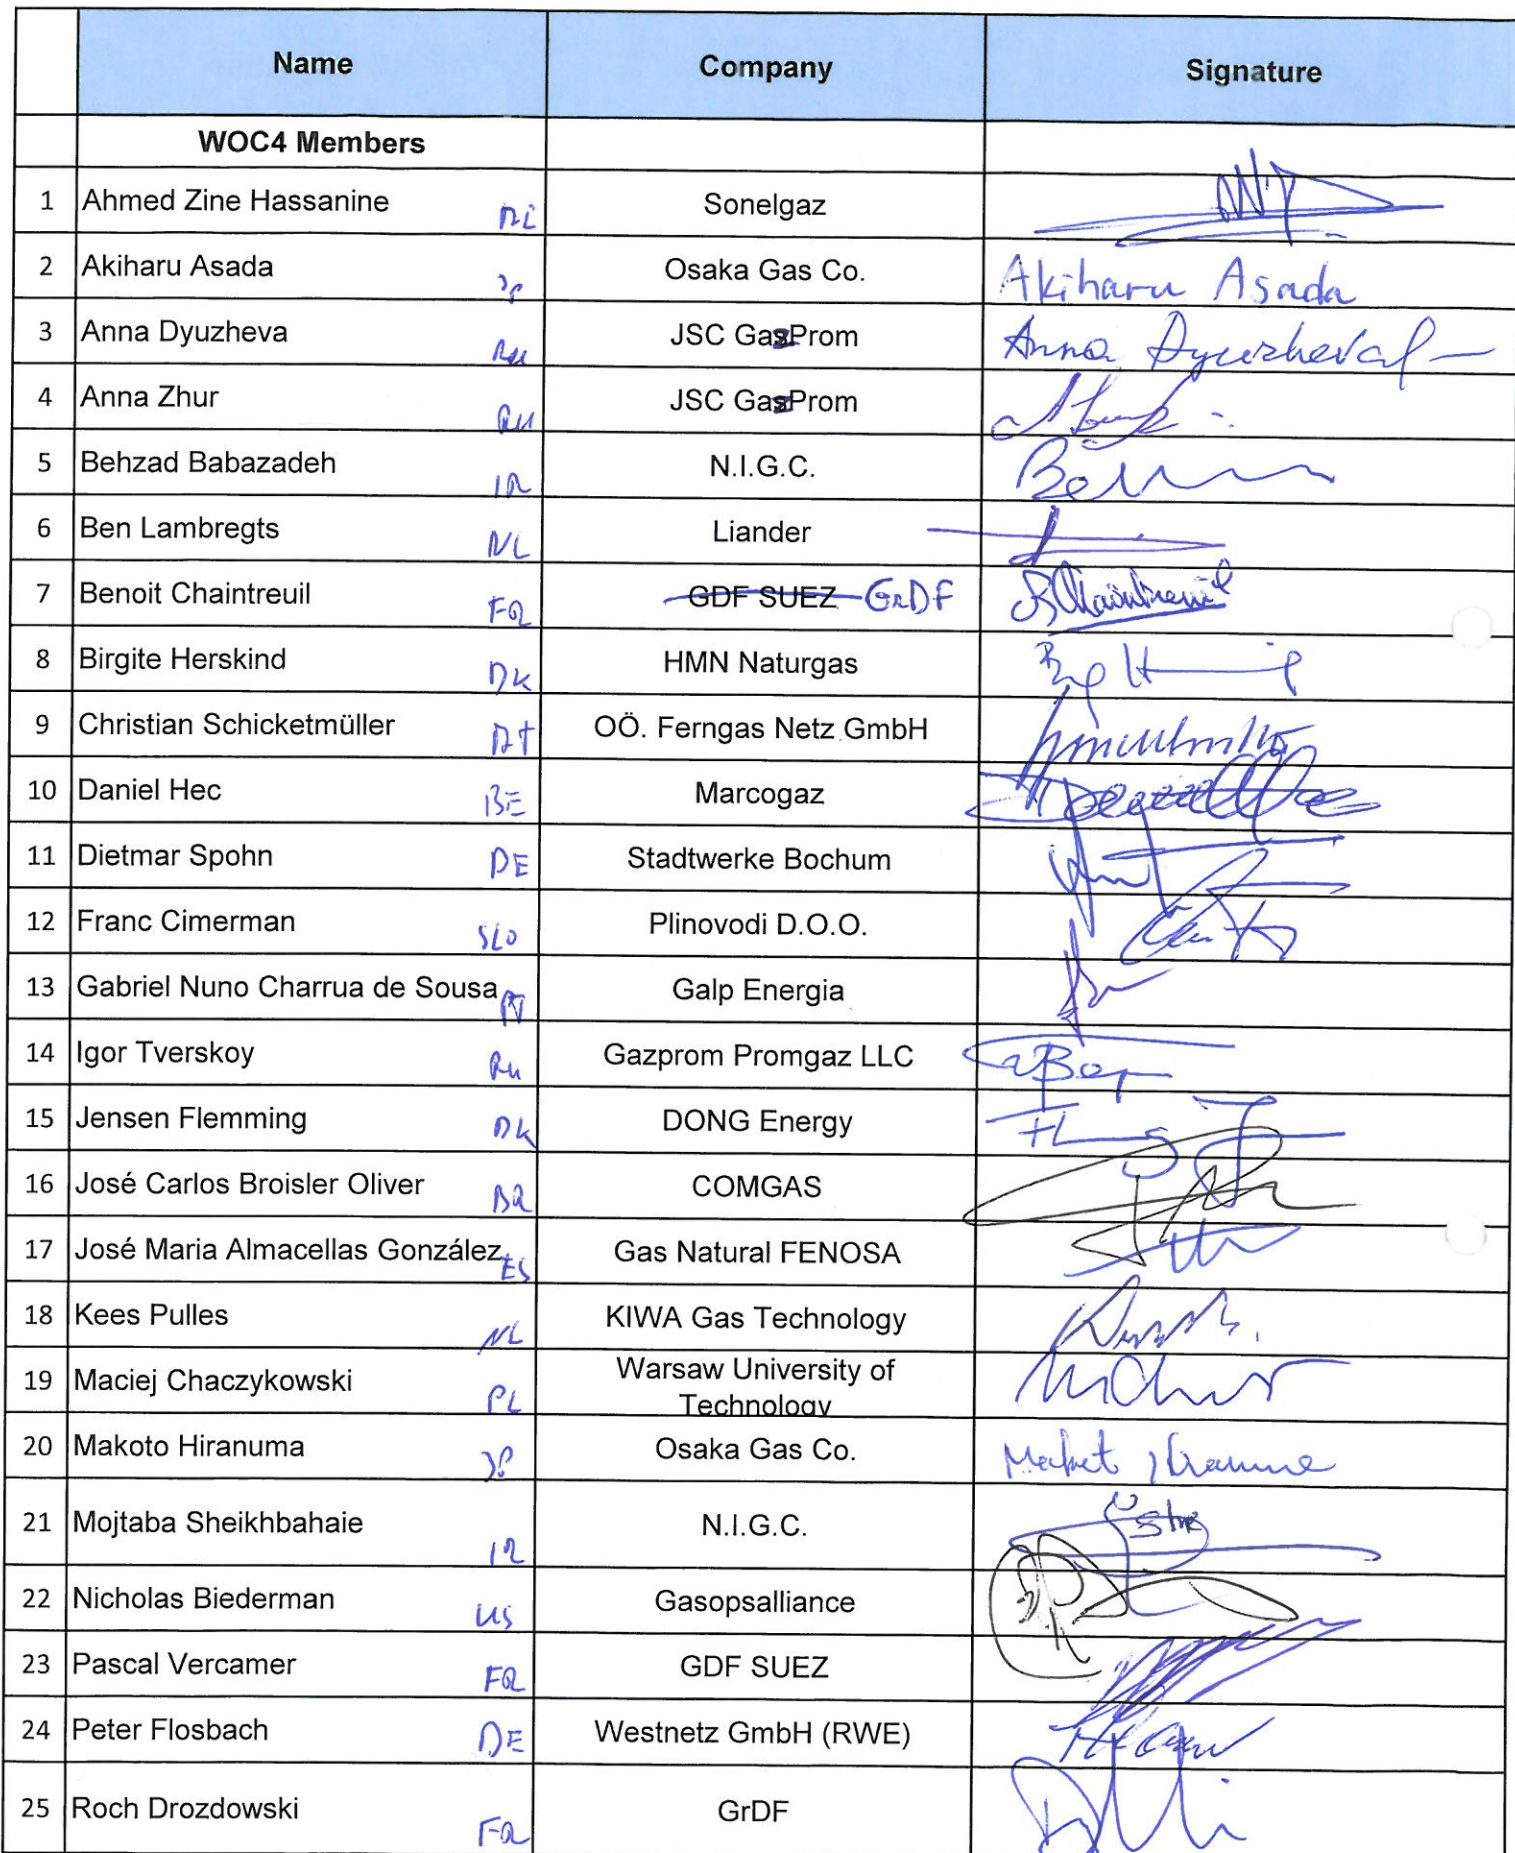 Name Company Signature
WOC4 Members
1 Ahmed Zine Hassanine Sonelgaz
2 Akiharu Asada Jp Osaka Gas Co. Akiharu Asada
3 Anna Dyuzheva Ru JSC GazProm Anna Dyuzheva
4 Anna Zhur Ru JSC GazProm
5 Behzad Babazadeh IR N.I.G.C.
6 Ben Lambregts NL Liander
7 Benoit Chaintreuil FR GDF SUEZ GrDF BChaintreuil
8 Birgite Herskind DK HMN Naturgas
9 Christian Schicketmüller AT OÖ. Ferngas Netz GmbH
10 Daniel Hec BE Marcogaz
11 Dietmar Spohn DE Stadtwerke Bochum
12 Franc Cimerman SLO Plinovodi D.O.O.
13 Gabriel Nuno Charrua de Sousa PT Galp Energia
14 Igor Tverskoy Ru Gazprom Promgaz LLC
15 Jensen Flemming DK DONG Energy
16 José Carlos Broisler Oliver BR COMGAS
17 José Maria Almacellas González ES Gas Natural FENOSA
18 Kees Pulles NL KIWA Gas Technology
19 Maciej Chaczykowski PL Warsaw University of
Technology
20 Makoto Hiranuma JP Osaka Gas Co.
21 Mojtaba Sheikhbahaie IR N.I.G.C.
22 Nicholas Biederman US Gasopsalliance
23 Pascal Vercamer FR GDF SUEZ
24 Peter Flosbach DE Westnetz GmbH (RWE)
25 Roch Drozdowski FR GrDF